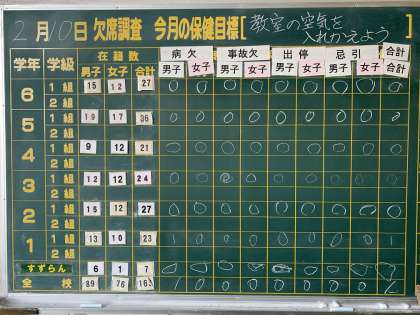 2月10日 欠席調査 今月の保健目標[教室の空気を入れかえよう]
学年 学級 在籍数 病欠 事故欠 出停 忌引 合計
男子 女子 合計 男子 女子 男子 女子 男子 女子 男子 女子 合計
6 1組 15 12 27 0 0 0 0 0 0 0 0 0
2組
5 1組 19 17 36 0 0 0 0 0 0 0 0 0
2組
4 1組 9 12 21 0 0 0 0 0 0 0 0 0
2組
3 1組 12 12 24 0 0 0 0 0 0 0 0
2組
2 1組 15 12 27 0 0 0 0 0 0 0 0 0
2組
1 1組 13 10 23 1 0 0 0 0 0 0 0 1
2組
すずらん 6 1 7 0 0 0 0 0 0 0 0
全校 89 76 163 1 0 0 0 0 0 0 0 1